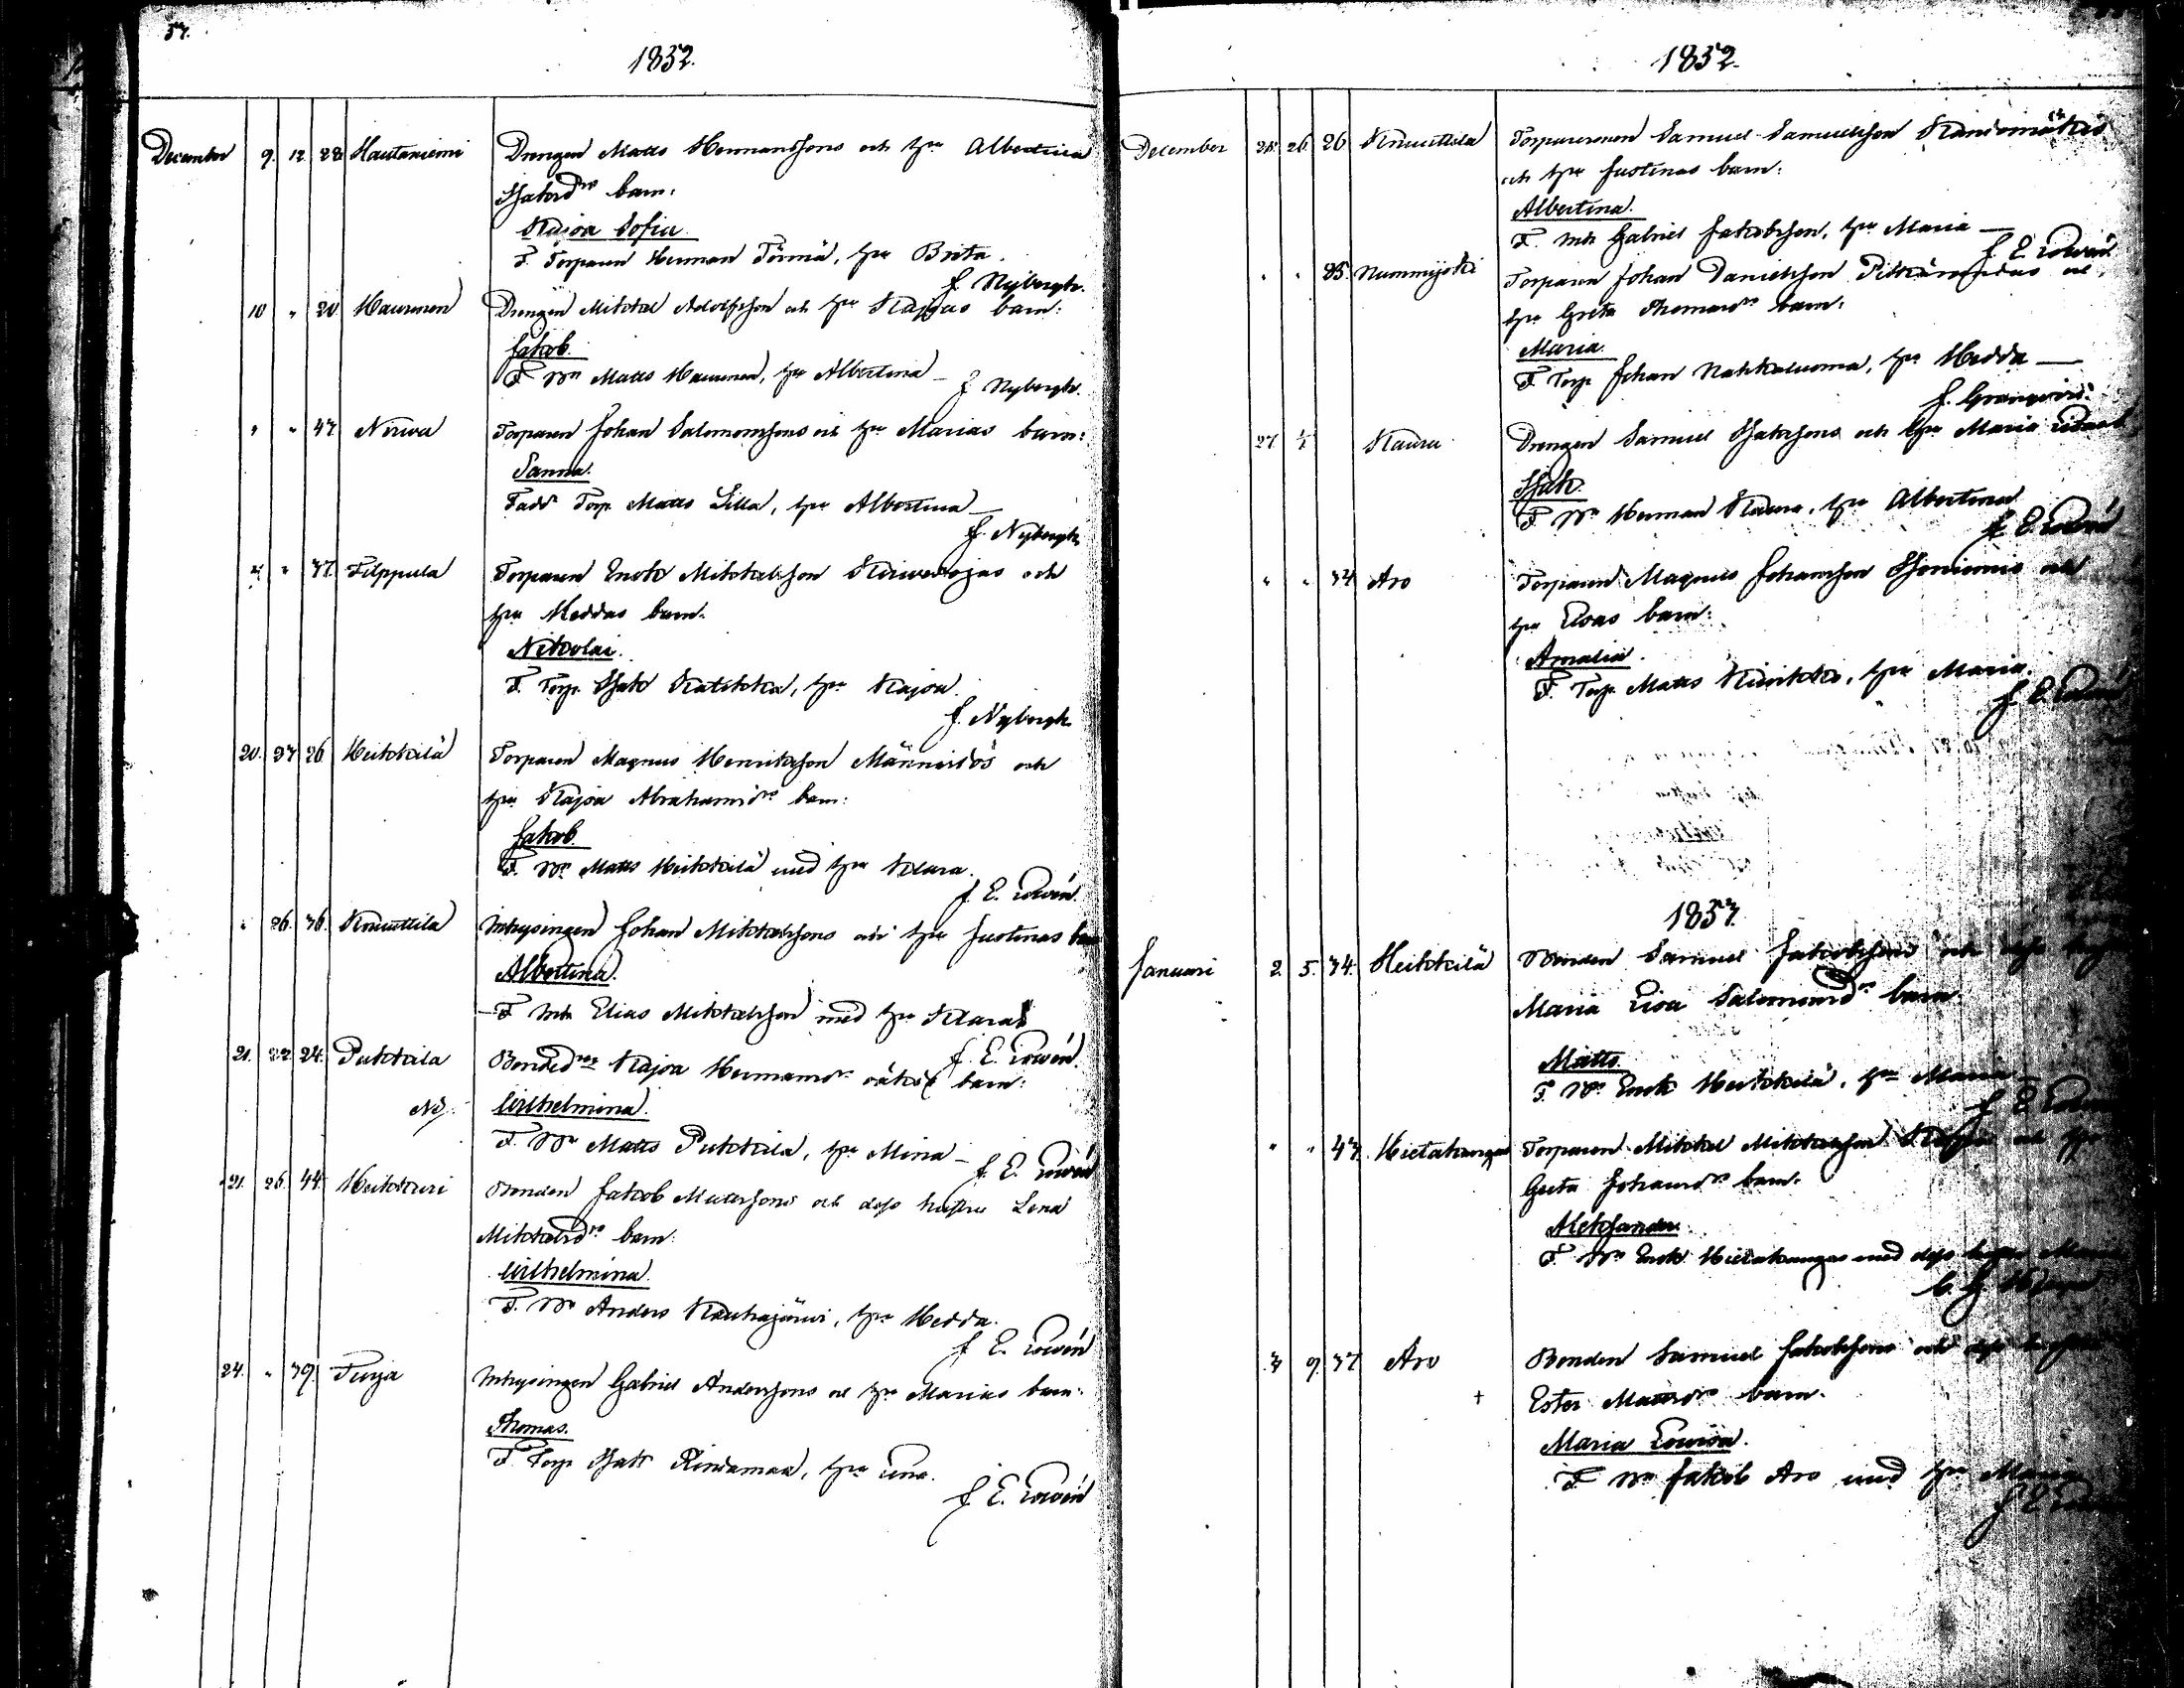 57.
1852.
December 9. 12 28 Hautaniemi Drengen Matts Hermanssons och hu Albertina
Isaksdrs barn:
Kajsa Sofia.
F. Torparen Herman Törmä, hu Brita.
J. Nybergh.
10 " 20 Haurunen Drengen Mikkel Adolfsson och hu Kajsas barn:
Jakob.
F Bn Matts Haurunen, hu Albertina —
J Nybergh.
" " 47 Nirva Torparen Johan Salomonssons och hu Marias barn:
Sanna.
Fadd Torp. Matts Lilla, hu Albertina —
J. Nybergh.
" 37. Filppula Torparen Enok Mikkelsson och
hu Heddas barn.
Nikolai.
F. Torp. Isak Katikka, hu Kajsa.
J. Nybergh.
20. 27 26. Heikkilä Torparen Magnus Henriksson Männistös och
hu Kajsa Abrahamsdrs barn:
Jakob.
F. Bn Matts Heikkilä med hu Klara.
J. E. Lovén.
" 26. 36. Knuuttila Inhysingen Johan Mikkelssons och hu Justinas barn
Albertina.
F Inh Elias Mikkelsson med hu Klara
J. E. Lovén.
21. 22 24. Pukkila Bonded Kajsa Hermansdrs oäkta barn:
No. Wilhelmina.
F. Bn Matts Pukkila, hu Mina —
J. E. Lovén
21. 26. 44. Heikkuri Bonden Jakob Mattssons och dess hustru Lena
Mikkelsdrs barn:
Wilhelmina.
F. Bn Anders Kauhajärvi, hu Hedda.
J E. Lovén
24. " 39. Turja Inhysingen Gabriel Anderssons och hu Marias barn:
Thomas.
F. Torp Isak Rindamaa, hu Lena.
J E. Lovén
1852.
December 25. 26. 26 Knuuttila Torparesonen Samuel Samuelsson
och hu Justinas barn:
Albertina.
F. Inh Gabriel Jakobsson, hu Maria —
J E Lovén
" " 25. Nummijoki Torparen Johan Danielsson och
hu Greta Thomasdrs barn:
Maria.
F Torp Johan Nahkaluoma, hu Hedda —
J. Granqvist.
27 Kaura Drengen Samuel Isakssons och hu Maria
Isak.
F Bn Herman Kaura, hu Albertina
J E Lovén
" " 34 Aro Torparen Magnus Johansson och
hu Evas barn:
Amalia.
F. Torp Matts hu Maria.
J. E. Lovén
1853.
Januari 2. 5. 34. Heikkilä Bonden Samuel Jakobssons och dess
Maria Lisa Salomonsdrs barn.
Matts.
F. Bn Enok Heikkilä, hu Maria —
J E Lovén
" " 43. Hietakangas Torparen Mikkel Mikkelsson och
Greta Johansdrs barn.
Aleksander.
F. Bn Enok Hietakangas med dess
3 9. 37 Aro Bonden Samuel Jakobssons och dess hustru
+ Ester Mattsdrs barn.
Maria Lovisa.
F Bn Jakob Aro med hu Maria
J E Lovén